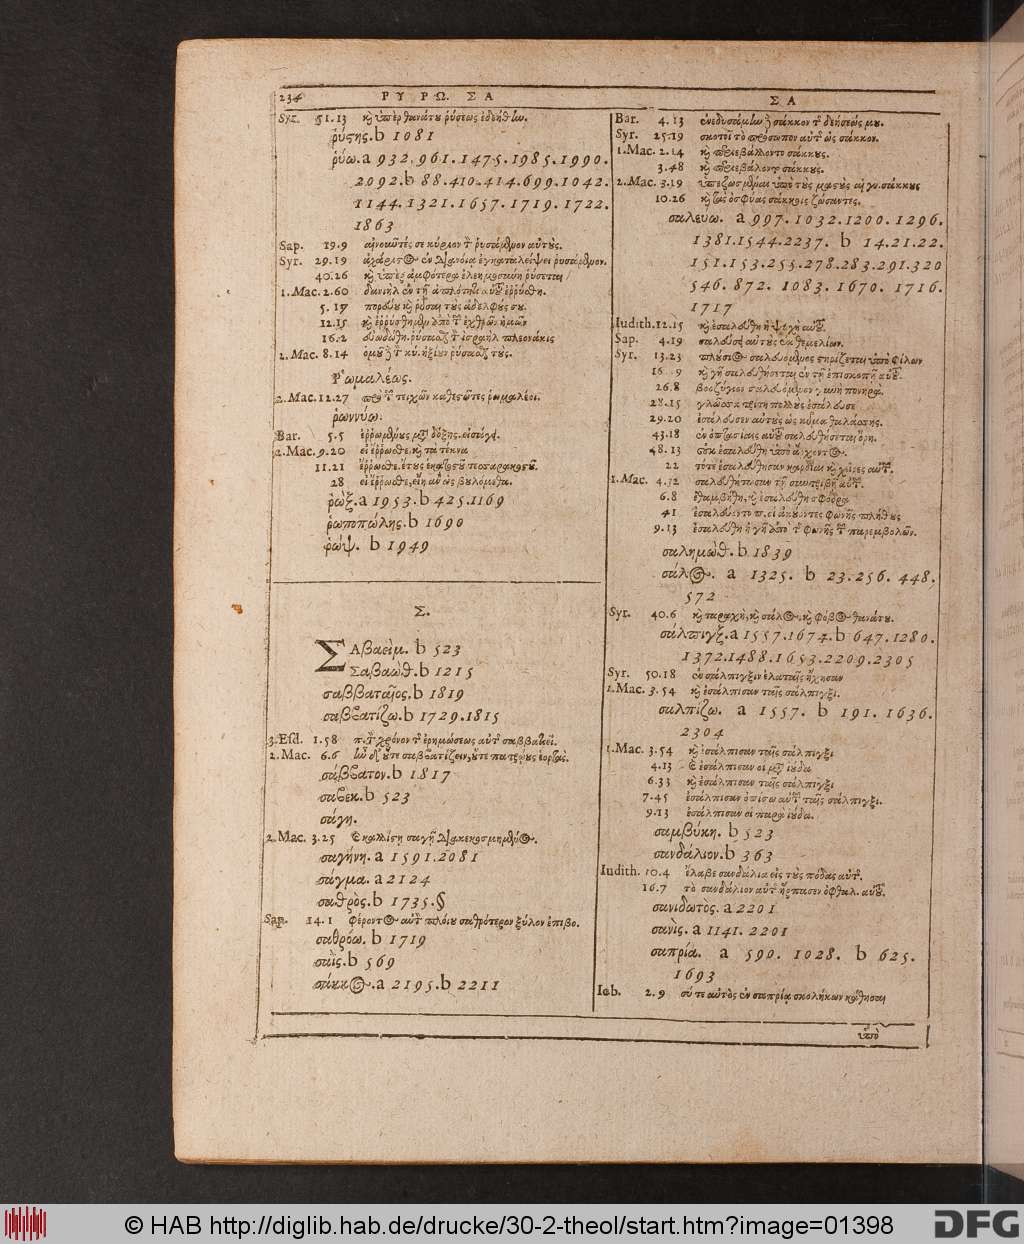 234 ΡΥ ΡΩ. ΣΑ
Syr. 51.13 καὶ ὑπὲρ θανάτου ῥύσεως ἐδεήθην.
ῥύστης. b 1081
ῥύω. a 932.961.1475.1985.1990.
2092. b 88.410.414.699.1042.
1144.1321.1657.1719.1722.
1863
Sap. 19.9 αἰνοῦντές σε κύριον τὸν ῥυσάμενον αὐτούς.
Syr. 29.19 ἀχάριστος ἐν διανοίᾳ ἐγκαταλείψει ῥυσάμενον.
40.26 καὶ ὑπὲρ ἀμφότερα ἐλεημοσύνη ῥύσεται
1.Mac. 2.60 δανιὴλ ἐν τῇ ἁπλότητι αὐτοῦ ἐρρύσθη.
5.17 πορεύου καὶ ῥῦσαι τοὺς ἀδελφούς σου.
12.15 καὶ ἐρρύσθημεν ἀπὸ τῶν ἐχθρῶν ἡμῶν
16.2 εὐωδώθη. ῥύσασθαι τὸν ἰσραὴλ πλεονάκις
2.Mac. 8.14 ὁμοῦ δὲ τὸν κύ. ἠξίουν ῥύσασθαι τοὺς.
Ῥωμαλέως.
2.Mac. 12.27 πρὸ τῶν τειχῶν καθεστῶτες ῥωμαλέοι.
ῥωννύω.
Bar. 5.5 ἐρρωμένους μετὰ δόξης.
2.Mac. 9.20 εἰ ἔρρωσθε, καὶ τὰ τέκνα
11.21 ἔρρωσθε. ἔτους ἑκατοστοῦ τεσσαρακοστοῦ.
28 εἰ ἔρρωσθε, εἴη ἂν ὡς βουλόμεθα.
ῥώξ. a 1953. b 425.1169
ῥωποπώλης. b 1690
ῥώψ. b 1949
Σ.
ΣΑβαεὶμ. b 523
Σαβαώθ. b 1215
σαββαταῖος. b 1819
σαββατίζω. b 1729.1815
3.Esd. 1.58 π.τ. χρόνον τῆς ἐρημώσεως αὐτῆς σαββατιεῖ.
2.Mac. 6.6 ἦν δὲ οὔτε σαββατίζειν, οὔτε πατρῴους ἑορτάς.
σάββατον. b 1817
σαβεκ. b 523
σάγη.
2.Mac. 3.25 καλλίστῃ σαγῇ διακεκοσμημένος.
σαγήνη. a 1591.2081
σάγμα. a 2124
σαθρὸς. b 1735.§
Sap. 14.1 φέροντος αὐτὸν πλοίου σαθρότερον ξύλον ἐπιβο.
σαθρόω. b 1719
σαῒς. b 569
σάκκος. a 2195. b 2211
ΣΑ
Bar. 4.13 ἐνεδυσάμην δὲ σάκκον τῆς δεήσεώς μου.
Syr. 25.19 σκοτοῖ τὸ πρόσωπον αὐτῆς ὡς σάκκον.
1.Mac. 2.14 καὶ περιεβάλλοντο σάκκους.
3.48 καὶ περιεβάλοντο σάκκους.
2.Mac. 3.19 ὑπεζωσμέναι ὑπὸ τοὺς μαστοὺς αἱ γυ. σάκκους
10.26 καὶ τὰς ὀσφύας σάκκοις ζώσαντες.
σαλεύω. a 997.1032.1200.1296.
1381.1544.2237. b 14.21.22.
151.153.255.278.283.291.320
546. 872. 1083. 1670. 1716.
1717
Iudith. 12.15 καὶ ἐσαλεύθη ἡ ψυχὴ αὐτοῦ.
Sap. 4.19 σαλεύσει αὐτοὺς ἐκ θεμελίων.
Syr. 13.23 πλούσιος σαλευόμενος στηρίζεται ὑπὸ φίλων
16.9 καὶ γῆ σαλευθήσονται ἐν τῇ ἐπισκοπῇ αὐτοῦ.
26.8 βοοζύγιον σαλευόμενον γυνὴ πονηρά.
28.15 γλῶσσα τρίτη πολλοὺς ἐσάλευσε
29.20 ἐσάλευσεν αὐτοὺς ὡς κῦμα θαλάσσης.
43.18 ἐν ὀπτασίαις αὐτοῦ σαλευθήσεται ὄρη.
48.13 οὐκ ἐσαλεύθη ὑπὸ ἄρχοντος.
22 τότε ἐσαλεύθησαν καρδίαι καὶ χεῖρες αὐτῶν.
1.Mac. 4.32 σαλευθήτωσαν τῇ συντριβῇ αὐτῶν.
6.8 ἐθαμβήθη, καὶ ἐσαλεύθη σφόδρα
41 ἐσαλεύοντο π. οἱ ἀκούοντες φωνῆς πλήθους
9.13 ἐσαλεύθη ἡ γῆ ἀπὸ τῆς φωνῆς τῶν παρεμβολῶν.
σαλημώθ. b 1839
σάλος. a 1325. b 23.256. 448.
572
Syr. 40.6 καὶ ταραχὴ, καὶ σάλος, καὶ φόβος θανάτου.
σάλπιγξ. a 1557.1674. b 647.1280.
1372.1488.1653.2209.2305
Syr. 50.18 ἐν σάλπιγξιν ἐλαταῖς ἤχησαν
1.Mac. 3.54 καὶ ἐσάλπισαν ταῖς σάλπιγξι.
σαλπίζω. a 1557. b 191. 1636.
2304
1.Mac. 3.54 καὶ ἐσάλπισαν ταῖς σάλπιγξι
4.13 ἐσάλπισαν οἱ μετὰ ἰούδα
6.33 καὶ ἐσάλπισαν ταῖς σάλπιγξι
7.45 ἐσάλπισαν ὀπίσω αὐτῶν ταῖς σάλπιγξι.
9.13 ἐσάλπισαν οἱ παρὰ ἰούδα.
σαμβύκη. b 523
σανδάλιον. b 363
Iudith. 10.4 ἔλαβε σανδάλια εἰς τοὺς πόδας αὐτῆς.
16.7 τὸ σανδάλιον αὐτῆς ἥρπασεν ὀφθαλ. αὐτοῦ.
σανιδωτὸς. a 2201
σανὶς. a 1141. 2201
σαπρία. a 590. 1028. b 625.
1693
Iob. 2.9 σύ τε αὐτὸς ἐν σαπρίᾳ σκολήκων κάθησαι
ὑπὸ
© HAB http://diglib.hab.de/drucke/30-2-theol/start.htm?image=01398
DFG